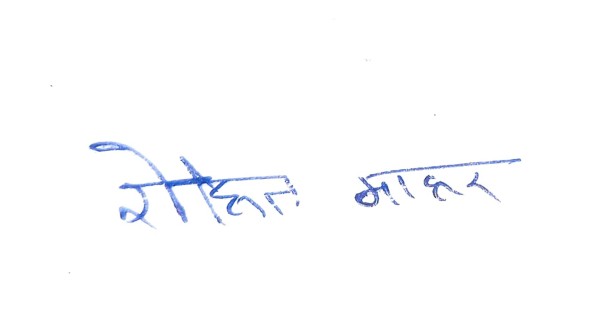 रोहित माहर